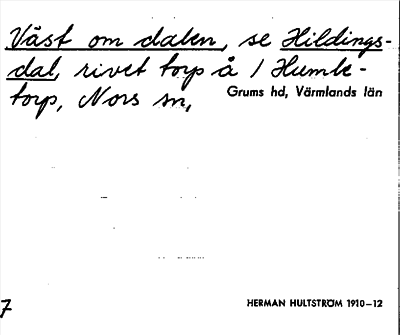 Väst om dalen, se Hildings-
dal, rivet torp å 1 Humle-
torp, Nors sn,
Grums hd, Värmlands län
7
HERMAN HULTSTRÖM 1910–12